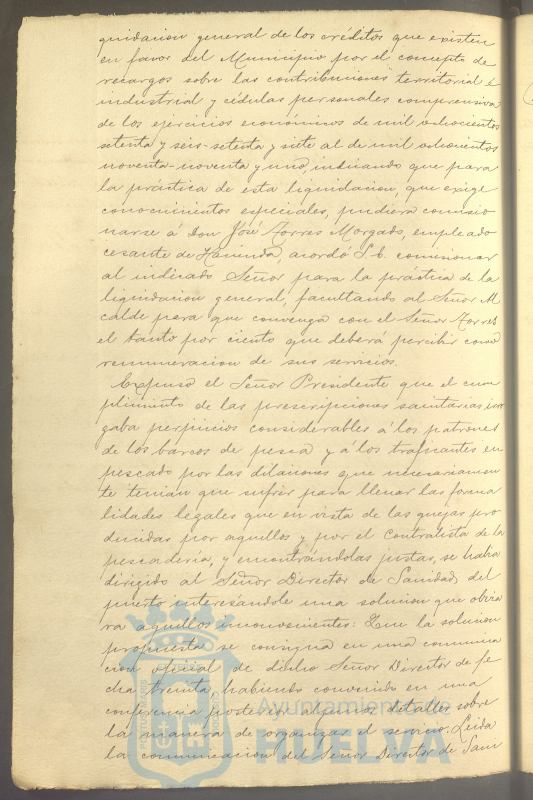 quidacion general de los créditos que existen
en favor del Municipio por el concepto de
recargos sobre las contribuciones territorial é
industrial y cédulas personales comprensiva
de los ejercicios económicos de mil ochocientos
setenta y seis-setenta y siete al de mil ochocientos
noventa-noventa y uno, indicando que para
la práctica de esta liquidacion, que exige
conocimientos especiales, pudiera comisio
narse á Don José Torres Morgado, empleado
cesante de Hacienda, acordó S.E. comisionar
al indicado Señor para la práctica de la
liquidacion general, facultando al Señor Al
calde para que convenga con el Señor Torres
el tanto por ciento que deberá percibir como
remuneracion de sus servicios.
Expuso el Señor Presidente que el cum
plimiento de las prescripciones sanitarias irro
gaba perjuicios considerables á los patrones
de los barcos de pesca y á los traficantes en
pescado por las dilaciones que necesariamen
te tenian que sufrir para llenar las forma
lidades legales que en vista de las quejas pro
ducidas por aquellos y por el contratista de la
pescadería, y encontrándolas justas, se habia
dirigido al Señor Director de Sanidad del
puerto interesándole una solucion que obvia
ra aquellos inconvenientes: Que la solucion
propuesta se consigna en una comunica
cion oficial de dicho Señor Director de fe
cha treinta, habiendo convenido en una
conferencia posterior algunos detalles sobre
la manera de organizar el servicio. Leida
la comunicacion del Señor Director de Sani
Ayuntamiento de
HUELVA